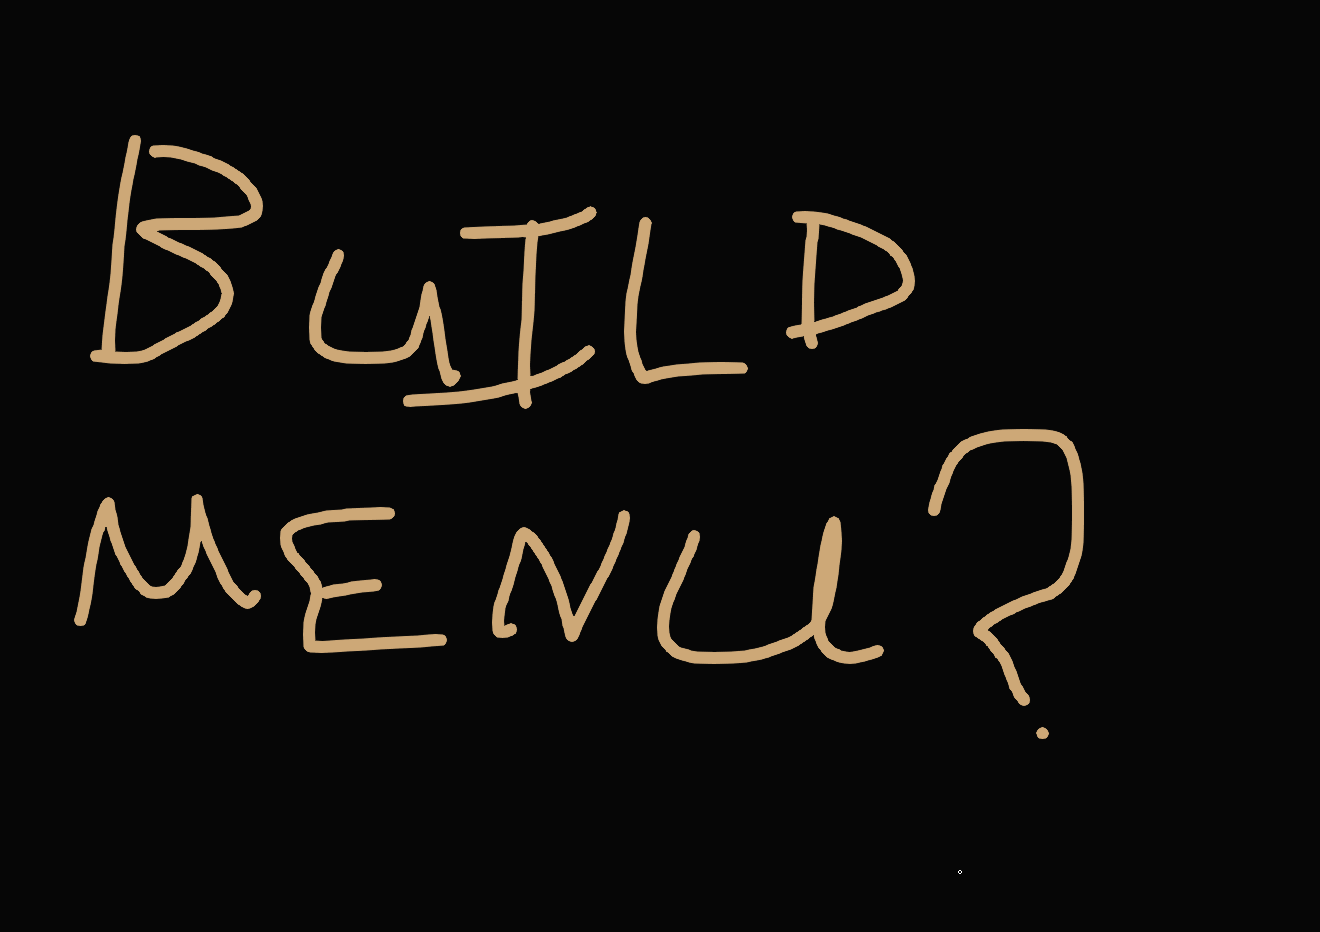 BUILD
MENU?